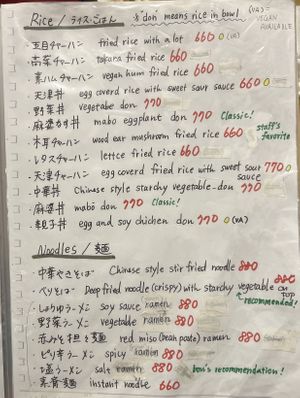 Rice / ライス・ごはん ※"don" means rice in bowl (VA) = VEGAN AVAILABLE
・五目チャーハン fried rice with a lot 660 (VA)
・高菜チャーハン takana fried rice 660
・素ハムチャーハン vegan ham fried rice 660
・天津丼 egg coverd rice with sweet sour sauce 660
・野菜丼 vegetabe don 770
・麻婆なす丼 mabo eggplant don 770 Classic!
・木耳チャーハン wood ear mushroom fried rice 660 staff's favorite
・レタスチャーハン lettce fried rice 660
・天津チャーハン egg coverd fried rice with sweet sour sauce 770
・中華丼 Chinese style starchy vegetable-don 770
・麻婆丼 mabō don 770 Classic!
・親子丼 egg and soy chichen don 770 (VA)
Noodles / 麺
・中華やきそば Chinese style stir fried noodle 880
・パリそば Deep fried noodle (crispy) with starchy vegetable ON TOP 880
recommended!
・しょうゆラーメン soy sauce ramen 880
・野菜ラーメン vegetable ramen 880
・赤みそ担々麺 red miso (bean paste) ramen 880
・ピリ辛ラーメン spicy ramen 880
・塩ラーメン salt ramen 880 recommendation!
・素香麺 instant noodle 660